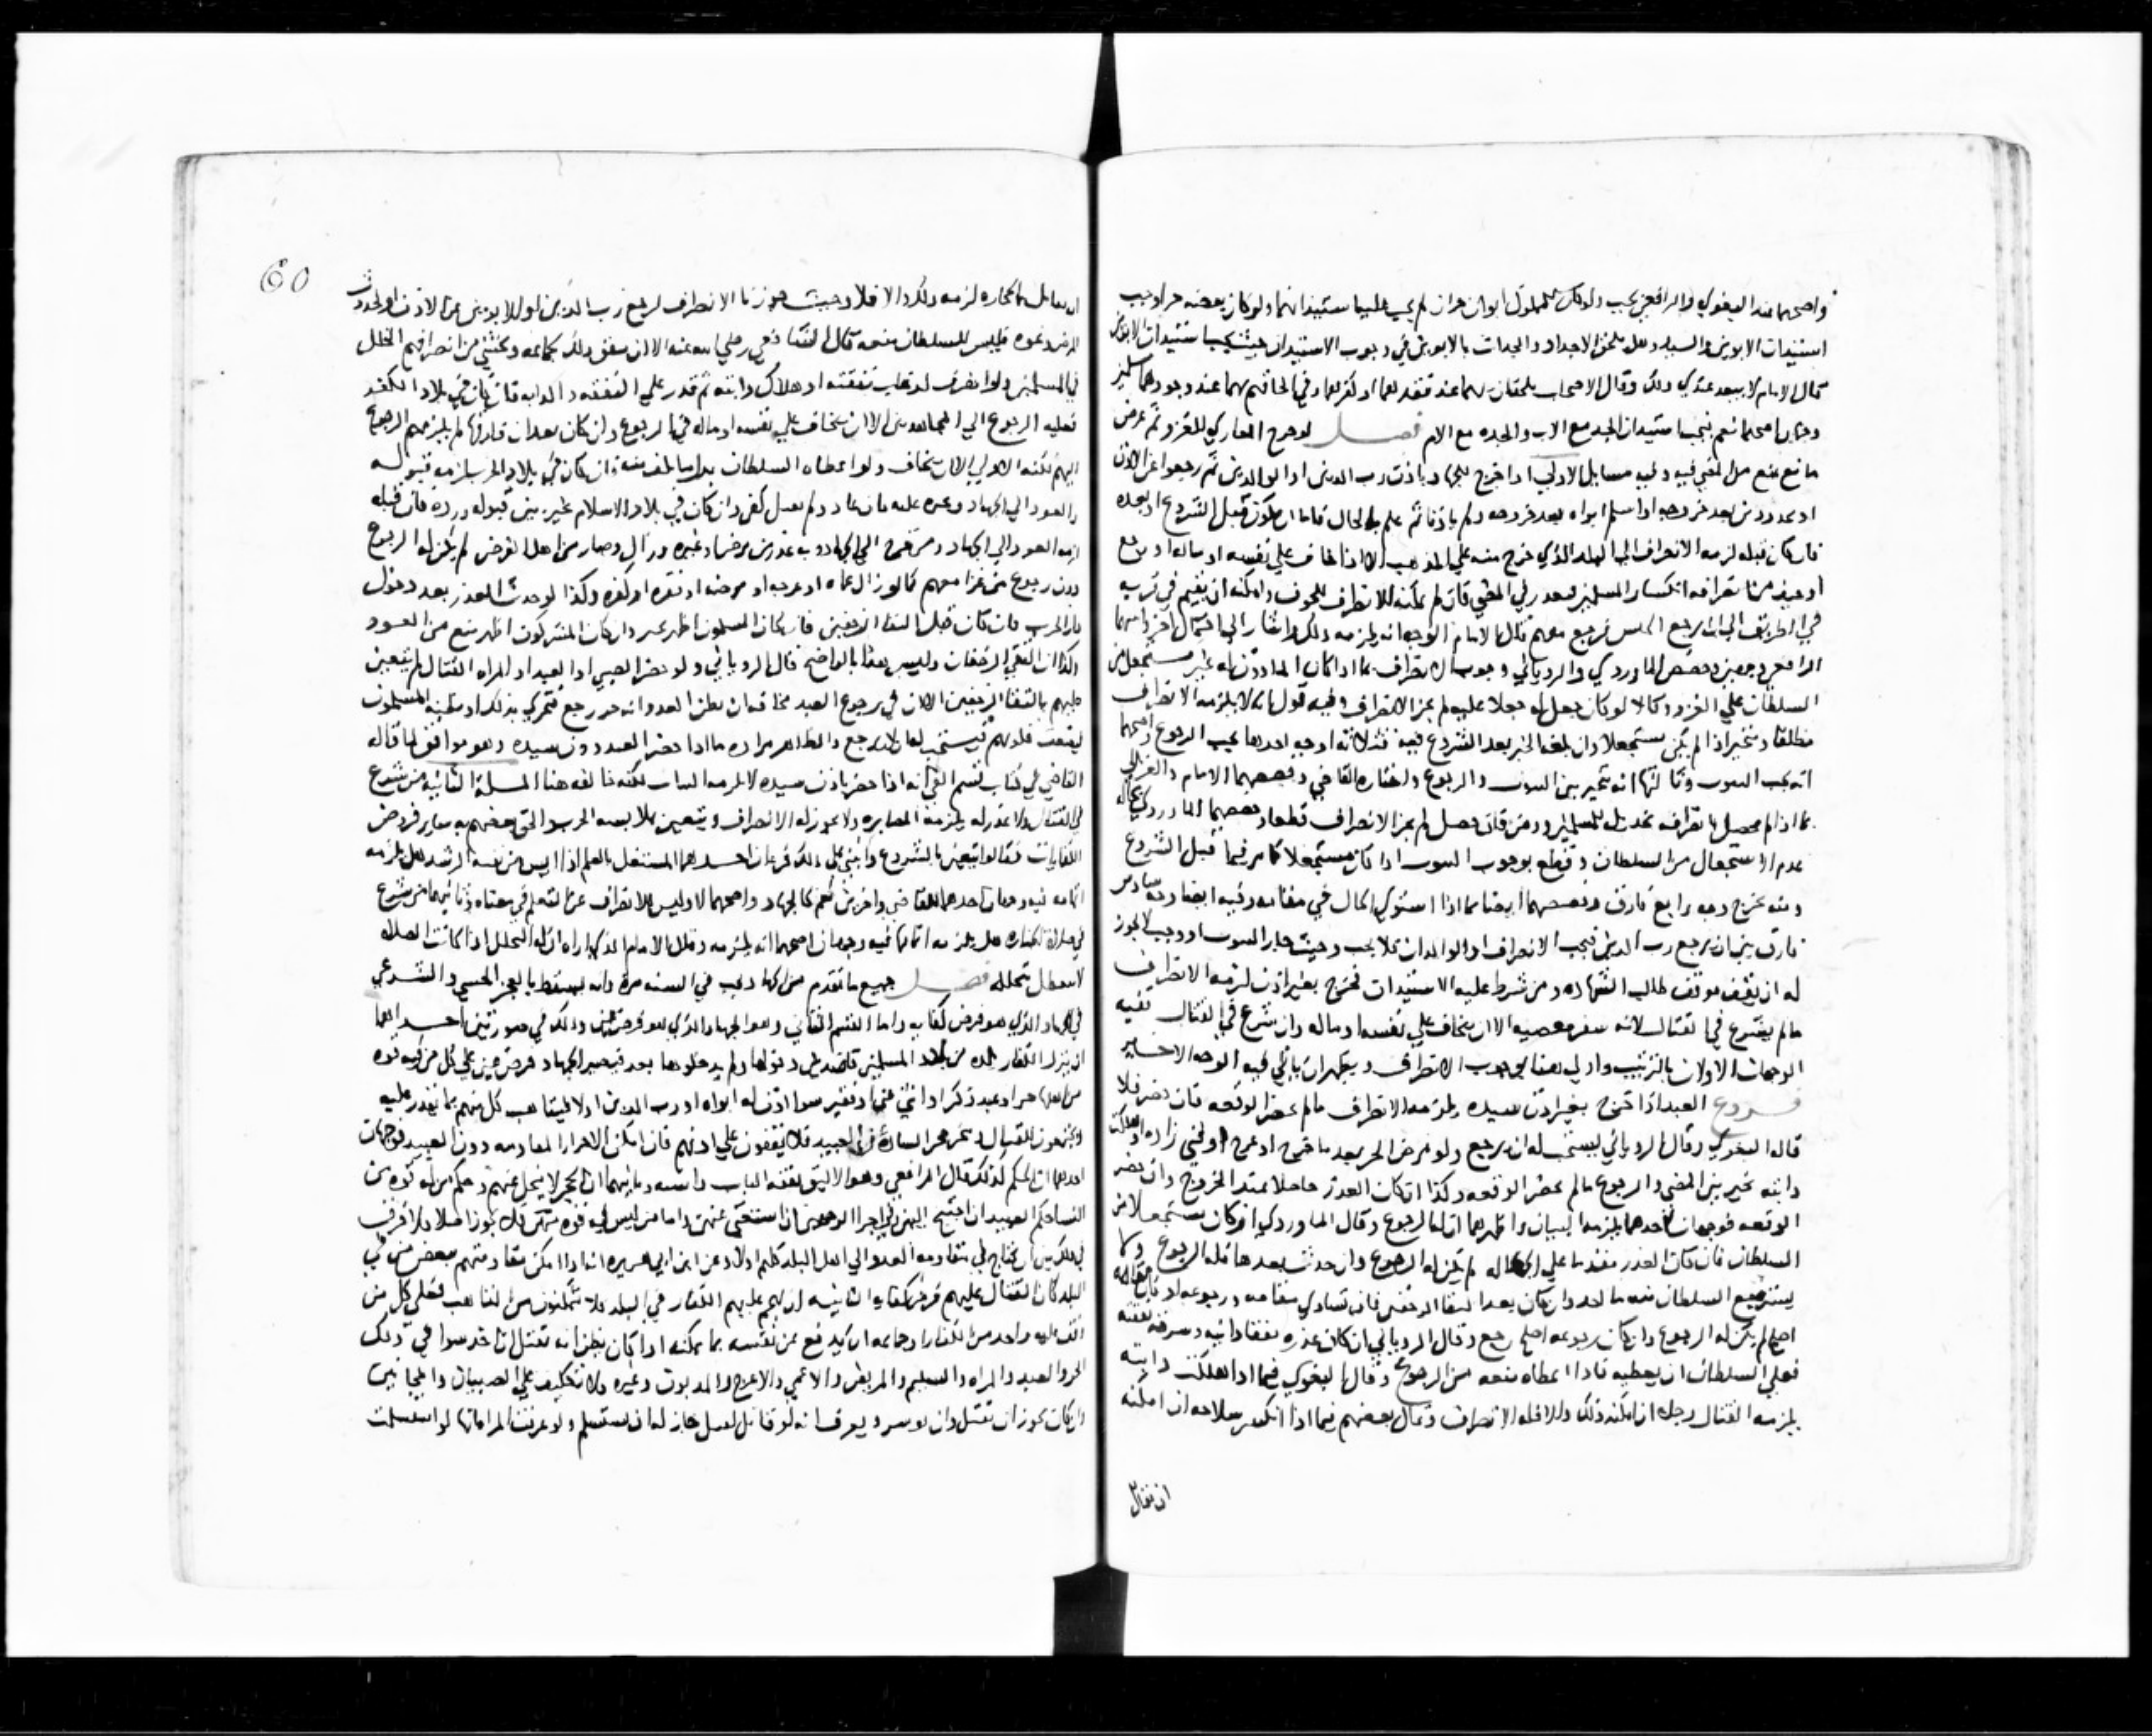 واصحهما عند البغوي والرافعي يجب ولو كان للمملوك ابوان حران لم يجب عليه استيذانهما ولو كان بعضه حرا وجب
استيذان الابوين والسيد وهل يلحق الاجداد والجدات بالابوين في وجوب الاستيذان حيث يجب استيذان الابوين
قال الامام لا يبعد عندي ذلك وقال الاصحاب يلحقان بهما عند فقدهما او كفرهما وفي الحاقهم بهما عند وجودهما مسلمين
وجهان اصحهما نعم فيجب استيذان الجد مع الاب والجدة مع الام فصل لو خرج الغازي للغزو ثم عرض
مانع يمنع من المضي فيه وفيه مسايل الاولى اذا خرج للجهاد باذن رب الدين او الوالدين ثم رجعوا عن الاذن
او بعد خروجه او اسلم ابواه بعد خروجه ولم ياذنا ثم علم بالحال فاما ان يكون قبل الشروع او بعده
فان كان قبله لزمه الانصراف الى البلد الذي خرج منه على المذهب الا اذا خاف على نفسه او ماله
انكسار المسلمين المضي فان لم يمكنه الانصراف للخوف وامكنه ان يقيم في قرية
في الطريق الى ان يرجع الجيش فيرجع معهم قال الامام الوجه انه يلزمه ذلك واشار الى احتمال اخر
الرافعي وجهين وخصص الماوردي والروياني وجوب الانصراف بما اذا كان الماذون له غير مستجعل من
السلطان على الغزو كما لو كان جعل له جعلا عليه لم يجز الانصراف وفيه قول انه لا يلزمه الانصراف
مطلقا ويتخير اذا لم يكن مستجعلا وان بلغه الخبر بعد الشروع ففيه ثلاثة اوجه احدها يجب الرجوع واصحها
انه يجب الثبوت وثالثها انه يتخير بين الثبوت والرجوع واختاره القاضي وخصصهما الامام والغزالي
بما اذا لم يحصل بانصرافه تخذيل للمسلمين ووهن فان حصل لم يجز الانصراف قطعا وخصصهما الماوردي بحالة
عدم الاستجعال من السلطان وقطع بوجوب الثبوت اذا كان مستجعلا كما مر فيما قبل الشروع
ومنه يخرج وجه رابع فارق وخصصهما ايضا بما اذا استوى الحال في مقامه وفيه ايضا وجه سادس
فارق بين ان يرجع رب الدين فيجب الانصراف او الوالدان فلا يجب وحيث جاز الثبوت او وجب لا يجوز
له ان يقف موقف طالب الشهادة ومن شرط عليه الاستيذان فخرج بغير اذن لزمه الانصراف
ما لم يشرع في القتال لانه سفر معصية الا ان يخاف على نفسه او ماله وان شرع في القتال ففيه
الوجهان الاولان بالترتيب واولى هنا بوجوب الانصراف ويظهر ان ياتي فيه الوجه الاخير
فروع العبد اذا خرج بغير اذن سيده يلزمه الانصراف ما لم يحضر الوقعة فان حضر فلا
قاله البغوي وقال الروياني يستحب له ان يرجع ولو مرض الحر بعد ما خرج او عرج او فني زاده او هلكت
دابته تخير بين المضي والرجوع ما لم يحضر الوقعة وكذا ان كان العذر حاصلا عند الخروج وان حضر
الوقعة فوجهان احدهما يلزمه الثبات واظهرهما ان له الرجوع وقال الماوردي ان كان مستجعلا من
السلطان فان كان العذر متقدما على الجعالة لم يكن له الرجوع وان حدث بعدها فله الرجوع ولا
يسترجع السلطان منه ما اخذ وان كان بعد التقا الزحفين فان تساوى مقامه ورجوعه او كان مقامه
اصلح لم يكن له الرجوع وان كان رجوعه اصلح رجع وقال الروياني ان كان عذره نفقة دابته وسرقة نفقته
فعلى السلطان ان يعطيه فاذا اعطاه منعه من الرجوع وقال البغوي فيما اذا هلكت دابته
يلزمه القتال رجلا ان امكنه ذلك والا فله الانصراف وقال بعضهم فيما اذا انكسر سلاحه ان امكنه
ان يقاتل
60
ان يقاتل بالحجارة لزمه ذلك والا فلا وحيث جوزنا الانصراف لرجوع رب الدين او الابوين عن الاذن او لحدوث
المرض ونحوه فليس للسلطان منعه قال الشافعي رضي الله عنه الا ان يتفق ذلك لجماعة ويخشى من انصرافهم الخلل
في المسلمين ولو انصرف لذهاب نفقته او هلاك دابته ثم قدر على النفقة والدابة فان كان في بلاد الكفر
فعليه الرجوع الى المجاهدين الا ان يخاف على نفسه او ماله في الرجوع وان كان بعد ان فارقها لم يلزمهم الرجوع
اليهم لكنه الاولى الا ان يخاف ولو اعطاه السلطان بدل ما تلف منه فان كان في بلاد الحرب لزمه قبوله
والعود الى الجهاد وان كان في بلاد الاسلام خير بين قبوله ورده فان قبله
لزمه العود الى الجهاد ومن خرج الى الجهاد وبه عذر من مرض او غيره وزال وصار من اهل الفرض لم يكن له الرجوع
دون رجوع من غزا معهم كما لو زال عماه او عرجه او مرضه او فقره او كفره وكذا لو حدث العذر بعد دخول
دار الحرب فان كان قبل التقا الزحفين فان كان المسلمون اظهر وان كان المشركون اظهر منع من العود
وكذا ان التقى الزحفان وليس هذا بالواضح قال الروياني ولو حضر الصبي او العبد او المراة القتال لم يتعين
عليهم بالتقا الزحفين الا ان في رجوع العبد مخافة ان يظن العدو انه حر رجع فتقوى بذلك او يظنه المسلمون
فتضعف قلوبهم فيستحب له ان لا يرجع والظاهر مراده ما اذا حضر العبد دون سيده وهو موافق لما قاله
القاضي في كتاب قسم الفي انه اذا حضر باذن سيده لا يلزمه الثبات لكنه خالفه هنا المسلة الثانية من شرع
في القتال ولا عذر له يلزمه المصابرة ولا يجوز له الانصراف ويتعين بملابسة الحرب والحق بعضهم به ساير فروض
الكفايات فقالوا تتعين بالشروع وانبنى على ذلك فرعان احدهما المشتغل بالعلم اذا انس من نفسه الرشد هل يلزمه
اتمامه فيه وجهان احدهما للقاضي واخرين نعم كالجهاد واصحهما لا وليس الانصراف عن التعلم في معناه وثانيهما من شرع
في صلاة الجنازة هل يلزمه اتمامها فيه وجهان اصحهما انه يلزمه
لا تبطل بتحلله فصل جميع ما تقدم من الجهاد يجب في السنة مرة وانه يسقط بالعجز الحسي والشرعي
في الجهاد الذي هو فرض كفاية واما القسم الثاني وهو الجهاد الذي هو فرض عين وذلك في صورتين احداهما
ان ينزل الكفار بلده من بلاد المسلمين قاصدين دخولها ولم يدخلوها بعد فيصير الجهاد فرض عين على كل من فيه قوة
من اهلها حر او عبد ذكر او انثى غني او فقير سوا اذن له ابواه او رب الدين او لا فيتاهب كل منهم بما يقدر عليه
وينهض للقتال وينحل حجر السادة عن العبيد فلا يتوقفون على اذنهم فان امكن الاحرار المقاومة دون العبيد فوجهان
احدهما ان الحكم كذلك قال الرافعي وهو الاليق بفقه الباب وثانيهما ان الحجر لا ينحل عنهم وحكم من له قوة من
النسا حكم العبيد ان احتيج اليهن واجرا الوجهين ان استغني عنهن واما من ليس فيه قوة منهن فلا يجوز اصلا ولا فرق
في ذلك بين ان يحتاج في مقاومة العدو الى اهل البلد كلهم او لا وعن ابن ابي هريرة انه اذا امكن مقاومتهم ببعض من في
البلد كان القتال عليهم فرض كفاية الثانية ان يهجم عليهم الكفار في البلد ولا يتمكنون من التاهب فعلى كل من
وقف عليه واحد من الكفار او جماعة ان يدفع عن نفسه بما يمكنه اذا كان يظن انه يقتل ان اخذ سوا في ذلك
الحر والعبد والمراة والسليم والمريض والاعمى والاعرج والمديون وغيره ولا تكليف على الصبيان والمجانين
وان كان يجوز ان يقتل وان يوسر ويعرف انه لو قاتل لقتل جاز له ان يستسلم ولو عرفت المراة انها لو استسلمت